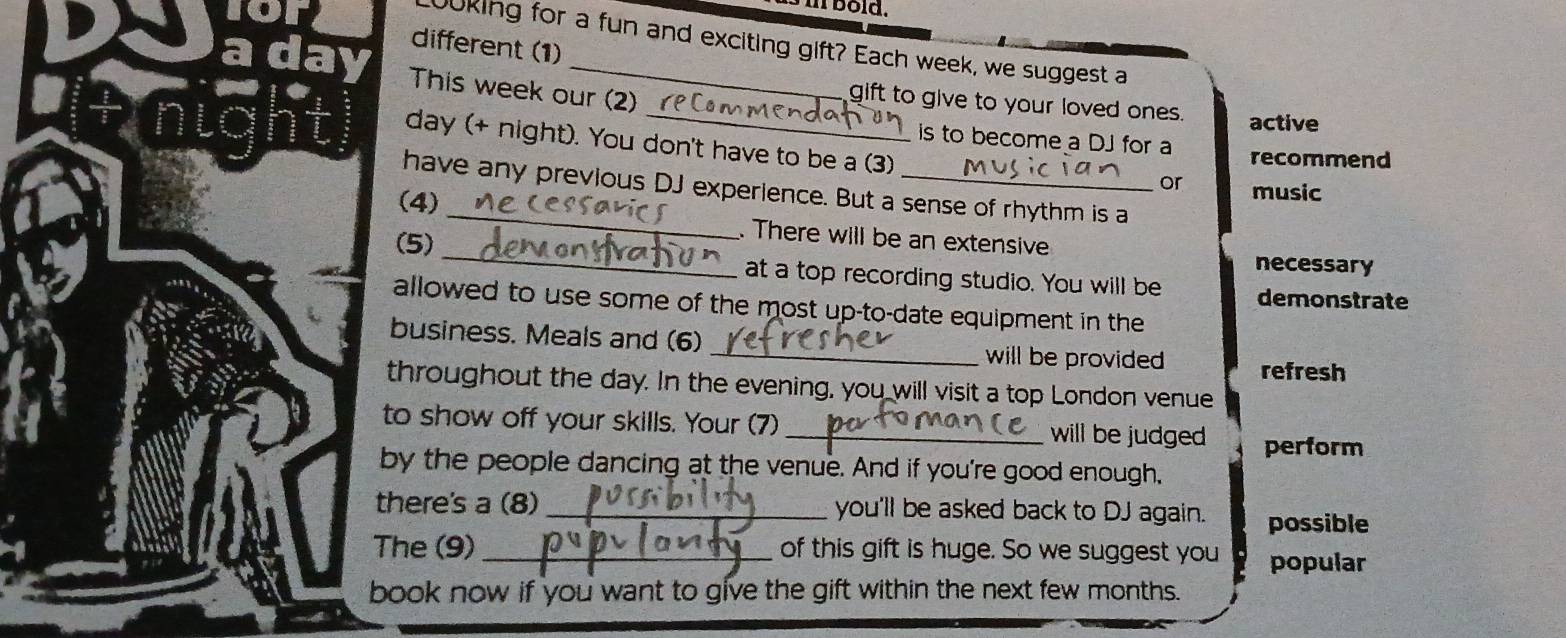 in bold.
DJ for
a day
(+ night)
Looking for a fun and exciting gift? Each week, we suggest a
different (1) ____ gift to give to your loved ones.
This week our (2) recommendation is to become a DJ for a
day (+ night). You don't have to be a (3) musician or
have any previous DJ experience. But a sense of rhythm is a
(4) necessaries. There will be an extensive
(5) demonstration at a top recording studio. You will be
allowed to use some of the most up-to-date equipment in the
business. Meals and (6) refresher will be provided
throughout the day. In the evening, you will visit a top London venue
to show off your skills. Your (7) perfomance will be judged
by the people dancing at the venue. And if you're good enough,
there's a (8) possibility you'll be asked back to DJ again.
The (9) popularity of this gift is huge. So we suggest you
book now if you want to give the gift within the next few months.
active
recommend
music
necessary
demonstrate
refresh
perform
possible
popular